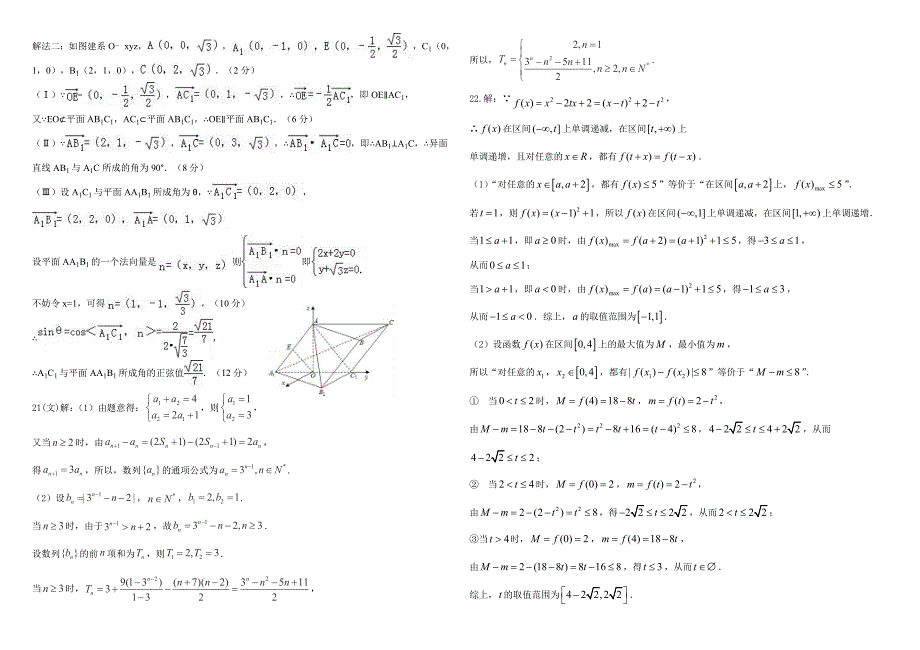 解法二：如图建系O﹣xyz，A（0，0，√3），A₁（0，-1，0），E（0，-1/2，√3/2），C₁（0，
1，0），B₁（2，1，0），C（0，2，√3）．（2分）
（Ⅰ）∵OE=（0，-1/2，√3/2），AC₁=（0，1，-√3），∴OE=-1/2AC₁，即OE∥AC₁，
又∵EO⊄平面AB₁C₁，AC₁⊂平面AB₁C₁，∴OE∥平面AB₁C₁．（6分）
（Ⅱ）∵AB₁=（2，1，-√3），A₁C=（0，3，√3），∴AB₁•A₁C=0，即∴AB₁⊥A₁C，∴异面
直线AB₁与A₁C所成的角为90°．（8分）
（Ⅲ）设A₁C₁与平面AA₁B₁所成角为θ，∵A₁C₁=（0，2，0），
A₁B₁=（2，2，0），A₁A=（0，1，√3）
设平面AA₁B₁的一个法向量是n=（x，y，z）则{A₁B₁•n=0 A₁A•n=0 即{2x+2y=0 y+√3z=0.
不妨令x=1，可得n=（1，-1，√3/3），（10分）
∴sinθ=cos<A₁C₁，n>=2/(2•√(7/3))=√21/7，
∴A₁C₁与平面AA₁B₁所成角的正弦值√21/7．（12分）
z
A
C
E
B
A₁
O
C₁
y
x
B₁
21(文)解：（1）由题意得：{a₁+a₂=4 a₂=2a₁+1，则{a₁=1 a₂=3，
又当n≥2时，由aₙ₊₁-aₙ=(2Sₙ+1)-(2Sₙ₋₁+1)=2aₙ，
得aₙ₊₁=3aₙ，所以，数列{aₙ}的通项公式为aₙ=3ⁿ⁻¹,n∈N*．
（2）设bₙ=|3ⁿ⁻¹-n-2|，n∈N*，b₁=2,b₂=1．
当n≥3时，由于3ⁿ⁻¹>n+2，故bₙ=3ⁿ⁻¹-n-2,n≥3．
设数列{bₙ}的前n项和为Tₙ，则T₁=2,T₂=3．
当n≥3时，Tₙ=3+9(1-3ⁿ⁻²)/(1-3)-(n+7)(n-2)/2=(3ⁿ-n²-5n+11)/2，
所以，Tₙ={2,n=1 (3ⁿ-n²-5n+11)/2,n≥2,n∈N*．
22.解：∵f(x)=x²-2tx+2=(x-t)²+2-t²，
∴f(x)在区间(-∞,t]上单调递减，在区间[t,+∞)上
单调递增，且对任意的x∈R，都有f(t+x)=f(t-x)．
（1）“对任意的x∈[a,a+2]，都有f(x)≤5”等价于“在区间[a,a+2]上，f(x)max≤5”．
若t=1，则f(x)=(x-1)²+1，所以f(x)在区间(-∞,1]上单调递减，在区间[1,+∞)上单调递增．
当1≤a+1，即a≥0时，由f(x)max=f(a+2)=(a+1)²+1≤5，得-3≤a≤1，
从而0≤a≤1；
当1>a+1，即a<0时，由f(x)max=f(a)=(a-1)²+1≤5，得-1≤a≤3，
从而-1≤a<0．综上，a的取值范围为[-1,1]．
（2）设函数f(x)在区间[0,4]上的最大值为M，最小值为m，
所以“对任意的x₁，x₂∈[0,4]，都有|f(x₁)-f(x₂)|≤8”等价于“M-m≤8”．
① 当0<t≤2时，M=f(4)=18-8t，m=f(t)=2-t²，
由M-m=18-8t-(2-t²)=t²-8t+16=(t-4)²≤8，4-2√2≤t≤4+2√2，从而
4-2√2≤t≤2；
② 当2<t≤4时，M=f(0)=2，m=f(t)=2-t²，
由M-m=2-(2-t²)=t²≤8，得-2√2≤t≤2√2，从而2<t≤2√2；
③当t>4时，M=f(0)=2，m=f(4)=18-8t，
由M-m=2-(18-8t)=8t-16≤8，得t≤3，从而t∈∅．
综上，t的取值范围为[4-2√2,2√2]．